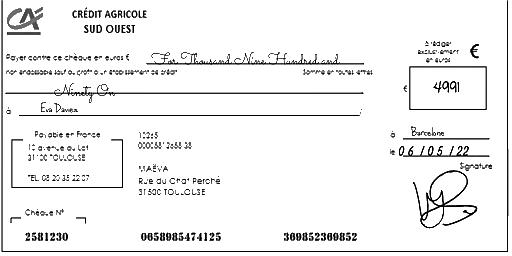 CA
CRÉDIT AGRICOLE
SUD OUEST
Payer contre ce chèque en euros € For Thousand Nine Hundred and
non endossable sauf au profit d'un établissement de crédit Somme en toutes lettres
Ninety On
à Eva Davies
à rédiger
exclusivement
en euros
€
€ 4991
Payable en France
10 avenue du Lot
31100 TOULOUSE
TEL. 08 20 35 22 07
10265
00008812668 38
MAËVA
Rue du Chat Perché
31500 TOULOUSE
à Barcelone
le 06/05/22
Signature
Chèque N°
2581230 0658985474125 369852369852